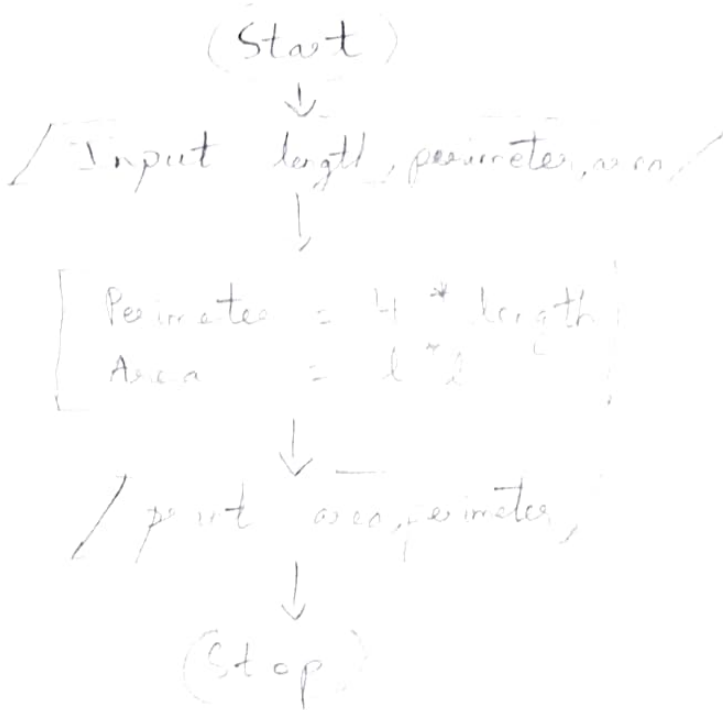 Start
Input length, perimeter, area
Perimeter = 4 * length
Area = l * l
print area, perimeter,
Stop